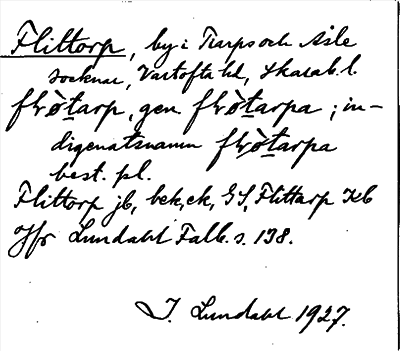 Flittorp, by i Karps och Åsle
socknar, Vartofta hd, Skarab. l.
flò̀tarp, gen. flò̀tarpa ; in-
digenatsnamn flò̀tarpa
best. pl.
Flittorp jb, bek, ek, GS, Flittarp Kb
Jfr Lundahl Falb. s. 138.
I. Lundahl 1927.